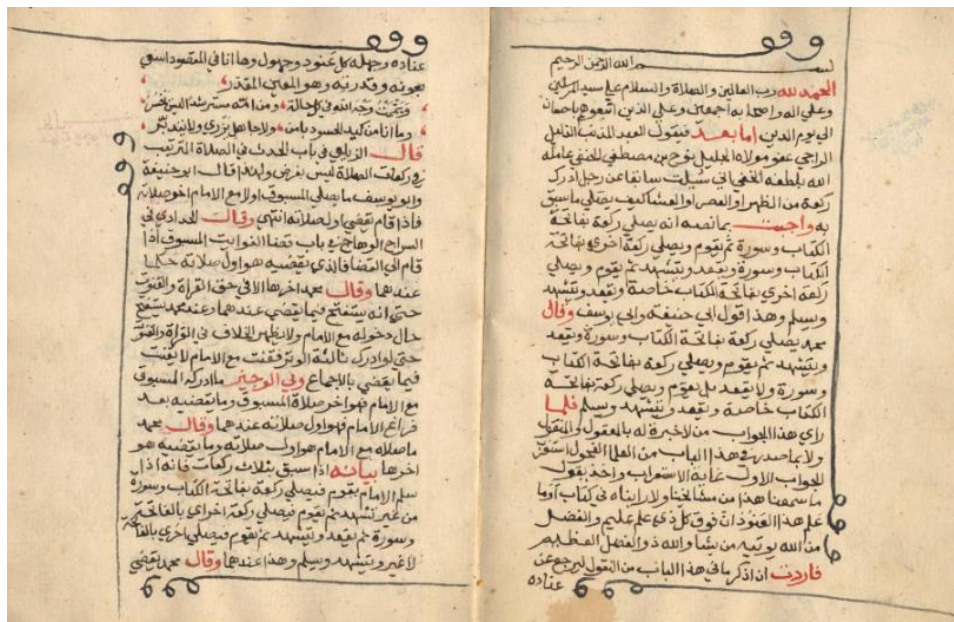 بسم الله الرحمن الرحيم
الحمد لله رب العالمين والصلاة والسلام على سيد المرسلين
وعلى اله واصحابه اجمعين وعلى الذين اتبعوهم باحسان
الى يوم الدين اما بعد فيقول العبد المذنب الذليل
الراجي عفو مولاه الجليل نوح بن مصطفى الحنفي عامله
الله بلطفه الخفي اني سئلت سابقا عن رجل ادرك
ركعة من الظهر او العصر او العشا كيف يصلي ما سبق
به واجبت بما نصه انه يصلي ركعة بفاتحة
الكتاب وسورة ثم يقوم ويصلي ركعة اخرى بفاتحة
الكتاب وسورة ويقعد ويتشهد ثم يقوم ويصلي
ركعة اخرى بفاتحة الكتاب خاصة ويقعد ويتشهد
ويسلم وهذا قول ابي حنيفة وابي يوسف وقال
محمد يصلي ركعة بفاتحة الكتاب وسورة ويقعد
ويتشهد ثم يقوم ويصلي ركعة بفاتحة الكتاب
وسورة ولا يقعد بل يقوم ويصلي ركعة بفاتحة
الكتاب خاصة ويقعد ويتشهد ويسلم فلما
راى هذا الجواب من لا خبرة له بالمعقول والمنقول
ولا بما صدر في هذا الباب من العلما الفحول استغرب
الجواب الاول غاية الاستغراب واخذ يقول
ما سمعنا هذا من مشائخنا ولا رايناه في كتاب اوما
علم هذا العنود ان فوق كل ذي علم عليم والفضل
من الله يوتيه من يشا والله ذو الفضل العظيم
فاردت ان اذكر ما في هذا الباب من النقول ليرجع عن
عناده
عناده وجهله كل عنود وجهول وها انا في المقصود اسعى
بعونه وقدرته وهو المعين المقدر
ويممت وجه الله في كل حالة ومن امه مسترشدا لين يخسر
وما انا من كيد الحسود بامن ولا جاهل يزري ولا يتدبر
قال الزيلعي في باب الحدث في الصلاة الترتيب
في ركعات الصلاة ليس بفرض ولهذا قال ابو حنيفة
وابو يوسف ما يصلي المسبوق اولا مع الامام اخر صلاته
فاذا قام يقضي اول صلاته انتهى وقال الحدادي في
السراج الوهاج في باب قضا الفوايت المسبوق اذا
قام الى القضا فالذي يقضيه هو اول صلاته حكما
عندهما وقال محمد اخرها الا في حق القراة والقنوت
حتى انه يستفتح فيما يقضي عندهما وعند محمد يستفتح
حال دخوله مع الامام ولا يظهر الخلاف في القراة والقنوت
حتى لو ادرك ثالثة الوتر فقنت مع الامام لا يقنت
فيما يقضي بالاجماع وفي الوجيز ما ادركه المسبوق
مع الامام فهو اخر صلاة المسبوق وما يقضيه بعد
فراغ الامام فهو اول صلاته عندهما وقال محمد
ما صلاه مع الامام هو اول صلاته وما يقضيه هو
اخرها بيانه اذا سبق بثلاث ركعات فانه اذا
سلم الامام يقوم فيصلي ركعة بفاتحة الكتاب وسورة
من غير تشهد ثم يقوم فيصلي ركعة اخرى بالفاتحة
وسورة ثم يقعد ويتشهد ثم يقوم فيصلي اخرى بالفاتحة
لا غير ويتشهد ويسلم وهذا عندهما وقال محمد يقضي